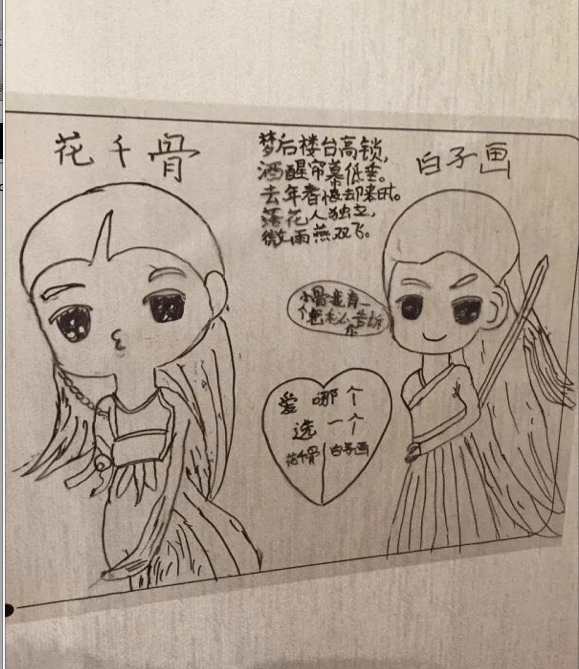 花千骨
梦后楼台高锁,
酒醒帘幕低垂。
去年春恨却来时。
落花人独立,
微雨燕双飞。
白子画
小骨我有一
个 告诉
你
爱哪个
选一个
花千骨 白子画